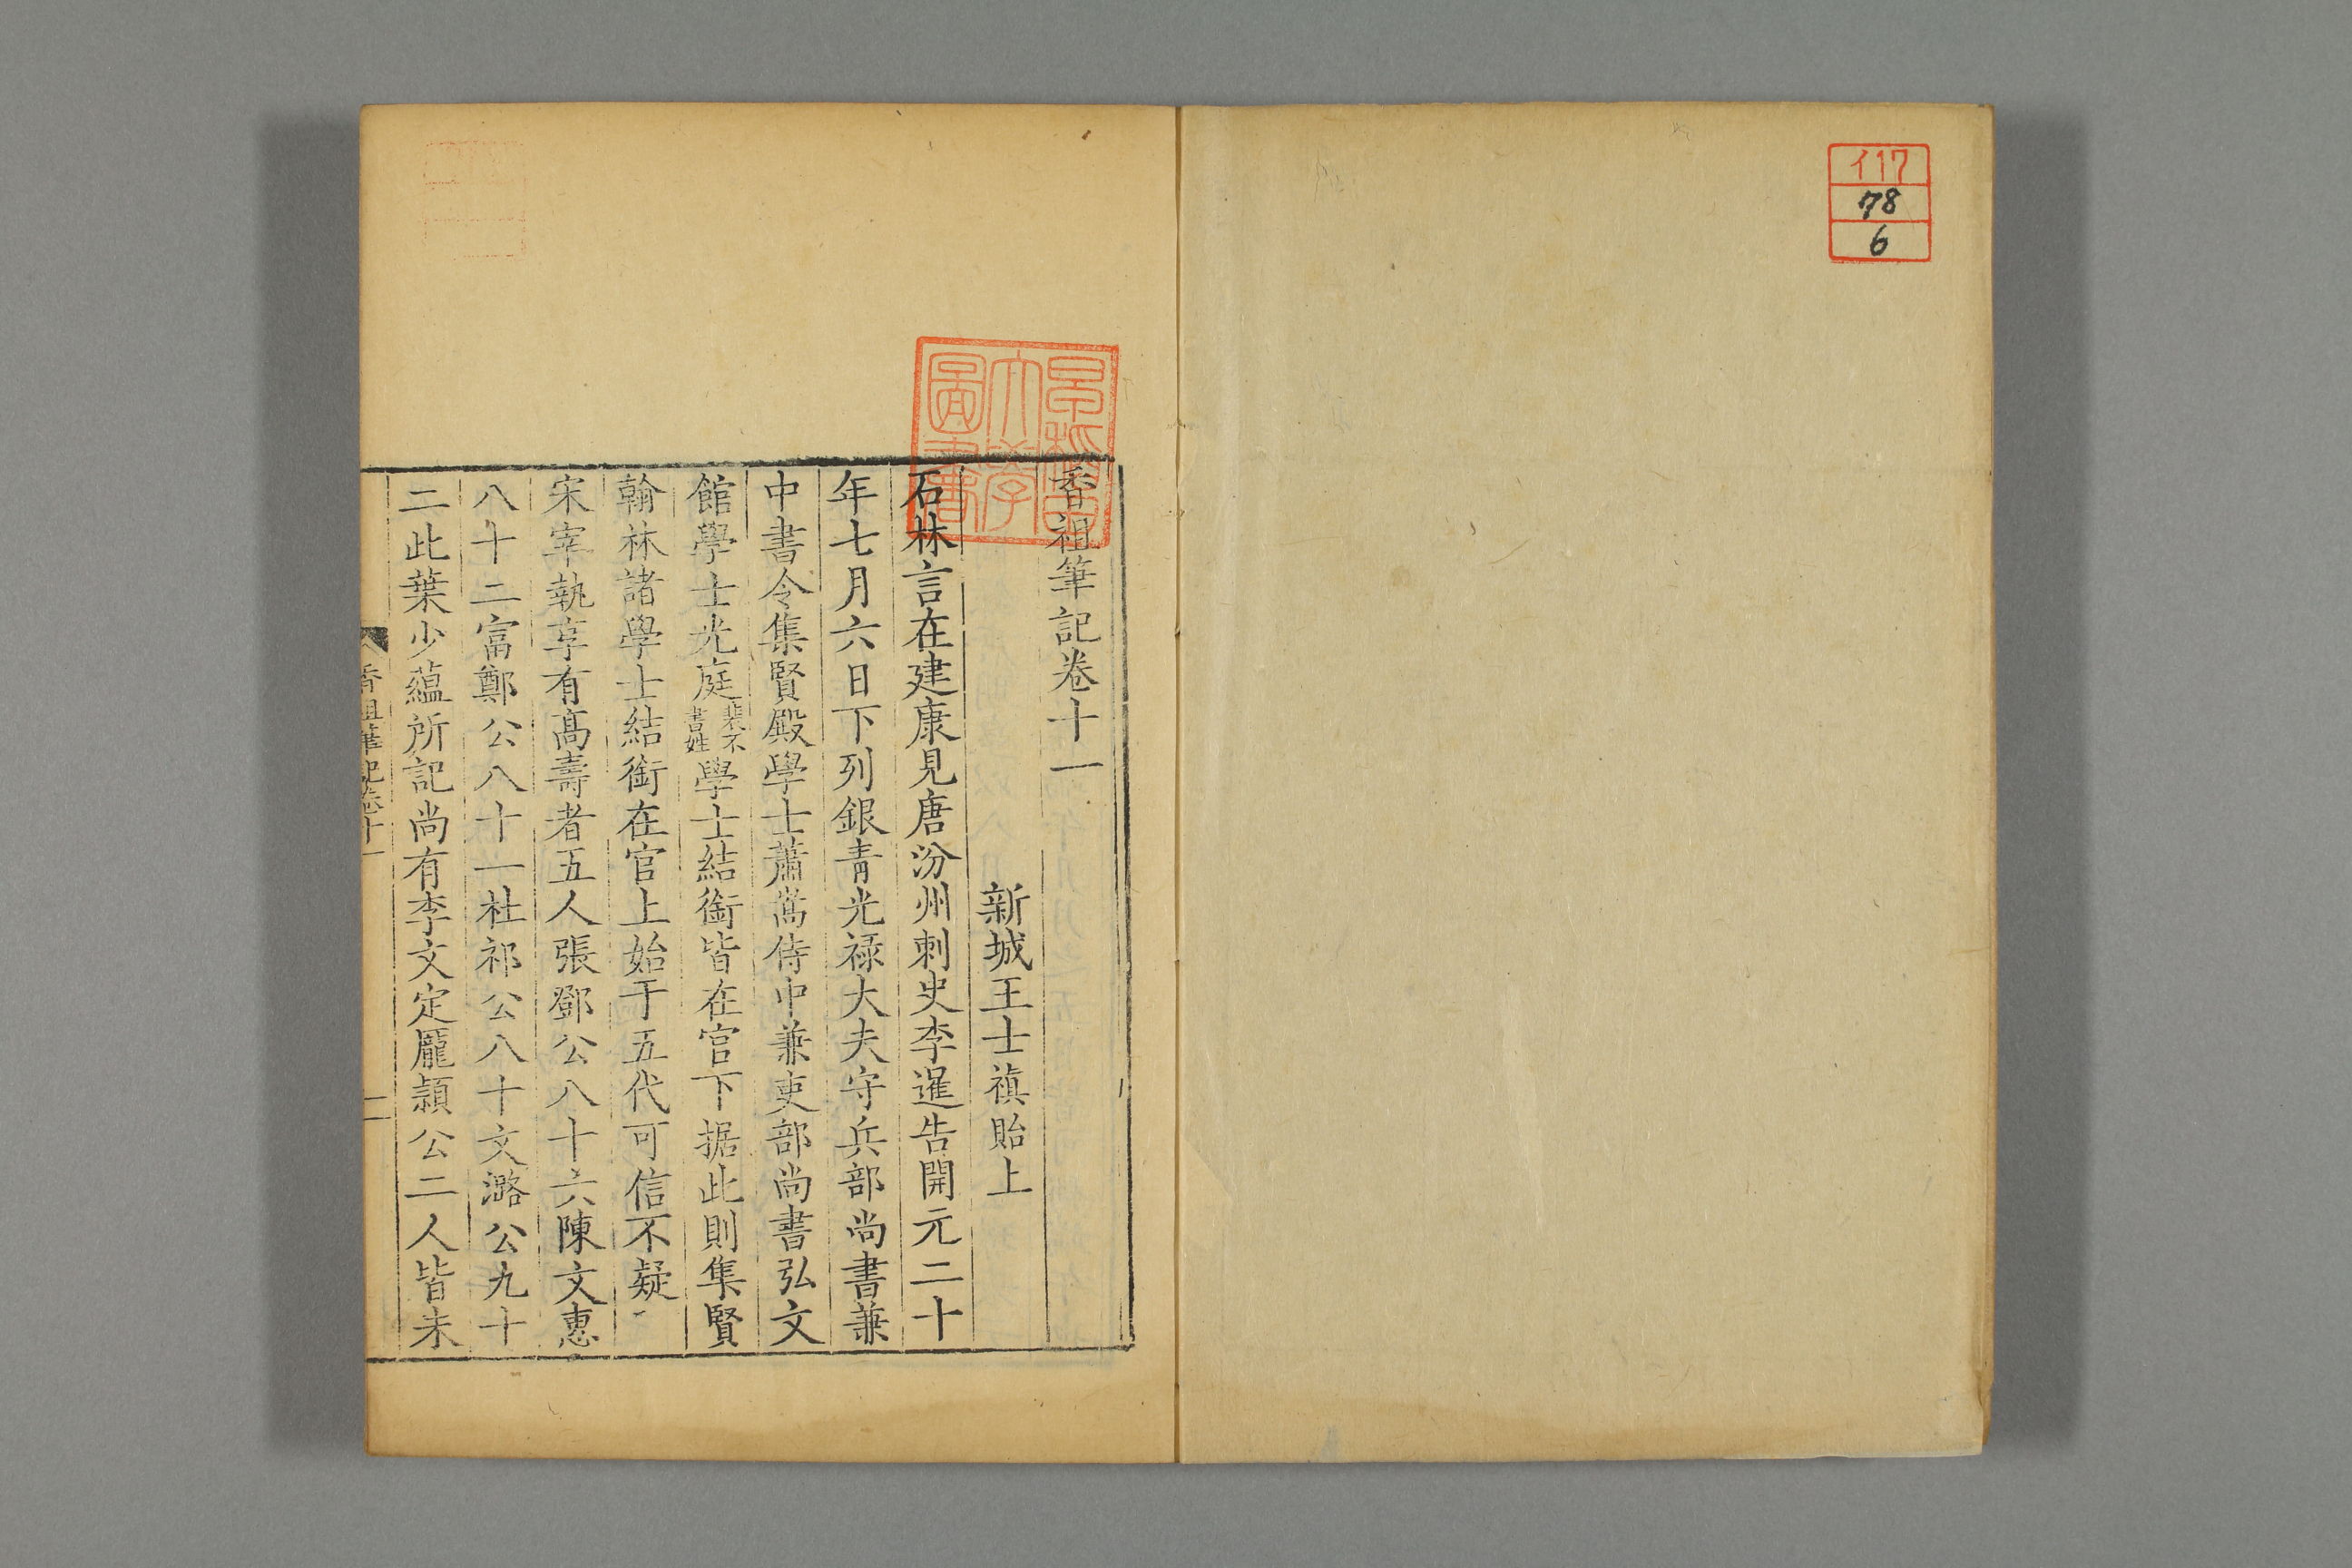 イ17
78
6
香祖筆記卷十一
新城王士禛貽上
石林言在建康見唐汾州刺史李暹告開元二十
年七月六日下列銀青光祿大夫守兵部尚書兼
中書令集賢殿學士蕭嵩侍中兼吏部尚書弘文
館學士光庭裴不書姓學士結銜皆在官下据此則集賢
翰林諸學士結銜在官上始于五代可信不疑
宋宰執享有高壽者五人張鄧公八十六陳文惠
八十二富鄭公八十一杜祁公八十文潞公九十
二此葉少蘊所記尚有李文定龐潁公二人皆未
香祖筆記卷十一
一
早稻田大學圖書